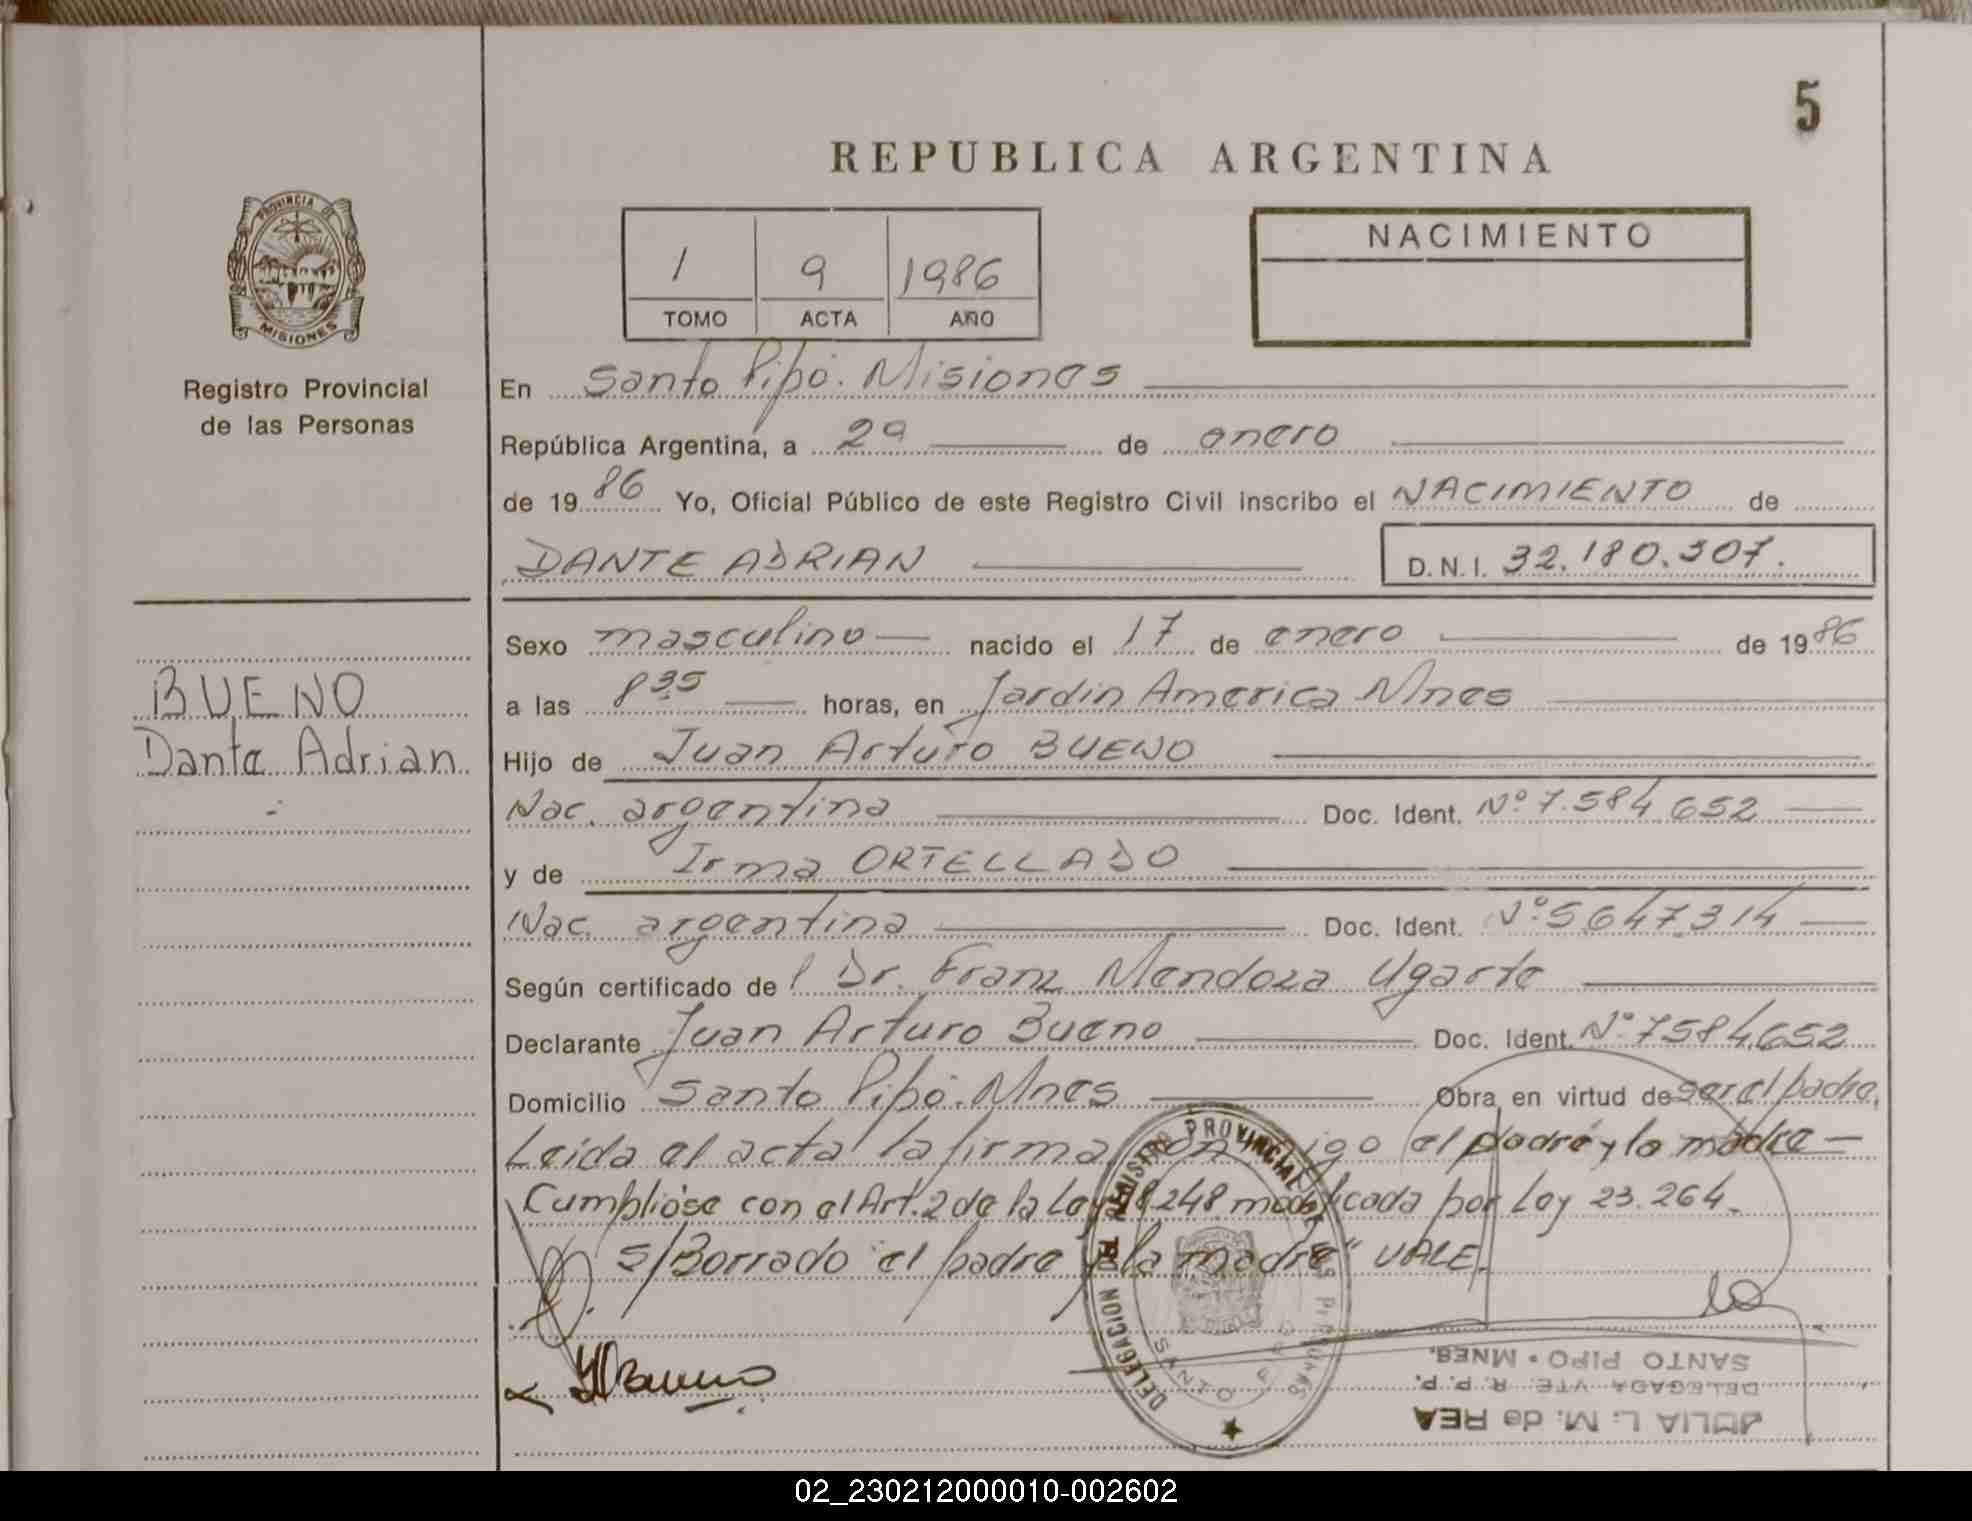 5
REPUBLICA ARGENTINA
PROVINCIA DE
MISIONES
Registro Provincial
de las Personas
1 9 1986
TOMO ACTA AÑO
NACIMIENTO
En Santo Pipó. Misiones
República Argentina, a 29 de enero
de 1986 Yo, Oficial Público de este Registro Civil inscribo el NACIMIENTO de
DANTE ADRIAN D.N.I. 32.180.307.
Sexo masculino nacido el 17 de enero de 1986
a las 8 35 horas, en Jardin America Mnes
BUENO
Dante Adrian
Hijo de Juan Arturo BUENO
Nac. argentina Doc. Ident. Nº 7.584.652
y de Irma ORTELLADO
Nac. argentina Doc. Ident. Nº 5.647.314
Según certificado de l Dr. Franz Mendoza Ugarte
Declarante Juan Arturo Bueno Doc. Ident. Nº 7.584.652
Domicilio Santo Pipó. Mnes Obra en virtud de ser el padre.
Leída el acta la firma el padre y la madre
Cumplióse con el Art. 2 de la Ley 18.248 modificada por Ley 23.264.
S/Borrado "el padre y la madre" VALE.
Bueno
DELEGACION DEL REGISTRO PROVINCIAL DE LAS PERSONAS
SANTO PIPO
JULIA L. M. de REA
DELEGADA VTE. R. P. P.
SANTO PIPO - MNES.
02_230212000010-002602